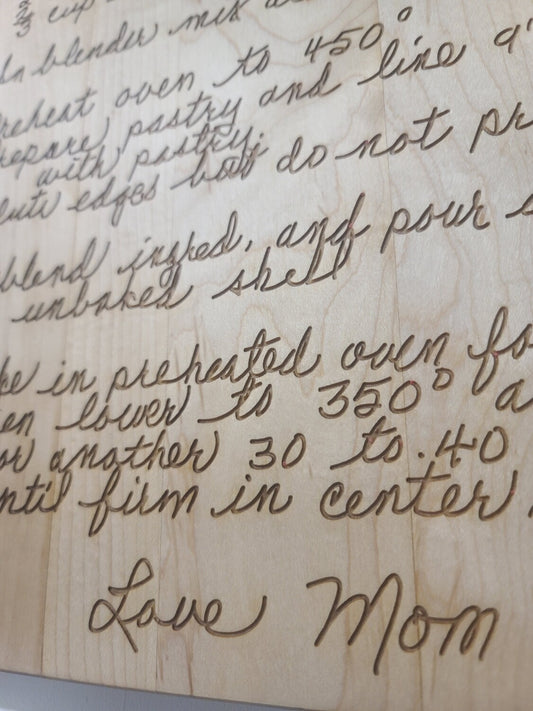 2/3 cup
In blender mix
Preheat oven to 450°
repare pastry and line 9"
with pastry.
lute edges but do not pr
blend ingred, and pour
unbaked shell
ke in preheated oven fo
en lower to 350° a
or another 30 to 40
ntil firm in center.
Love Mom